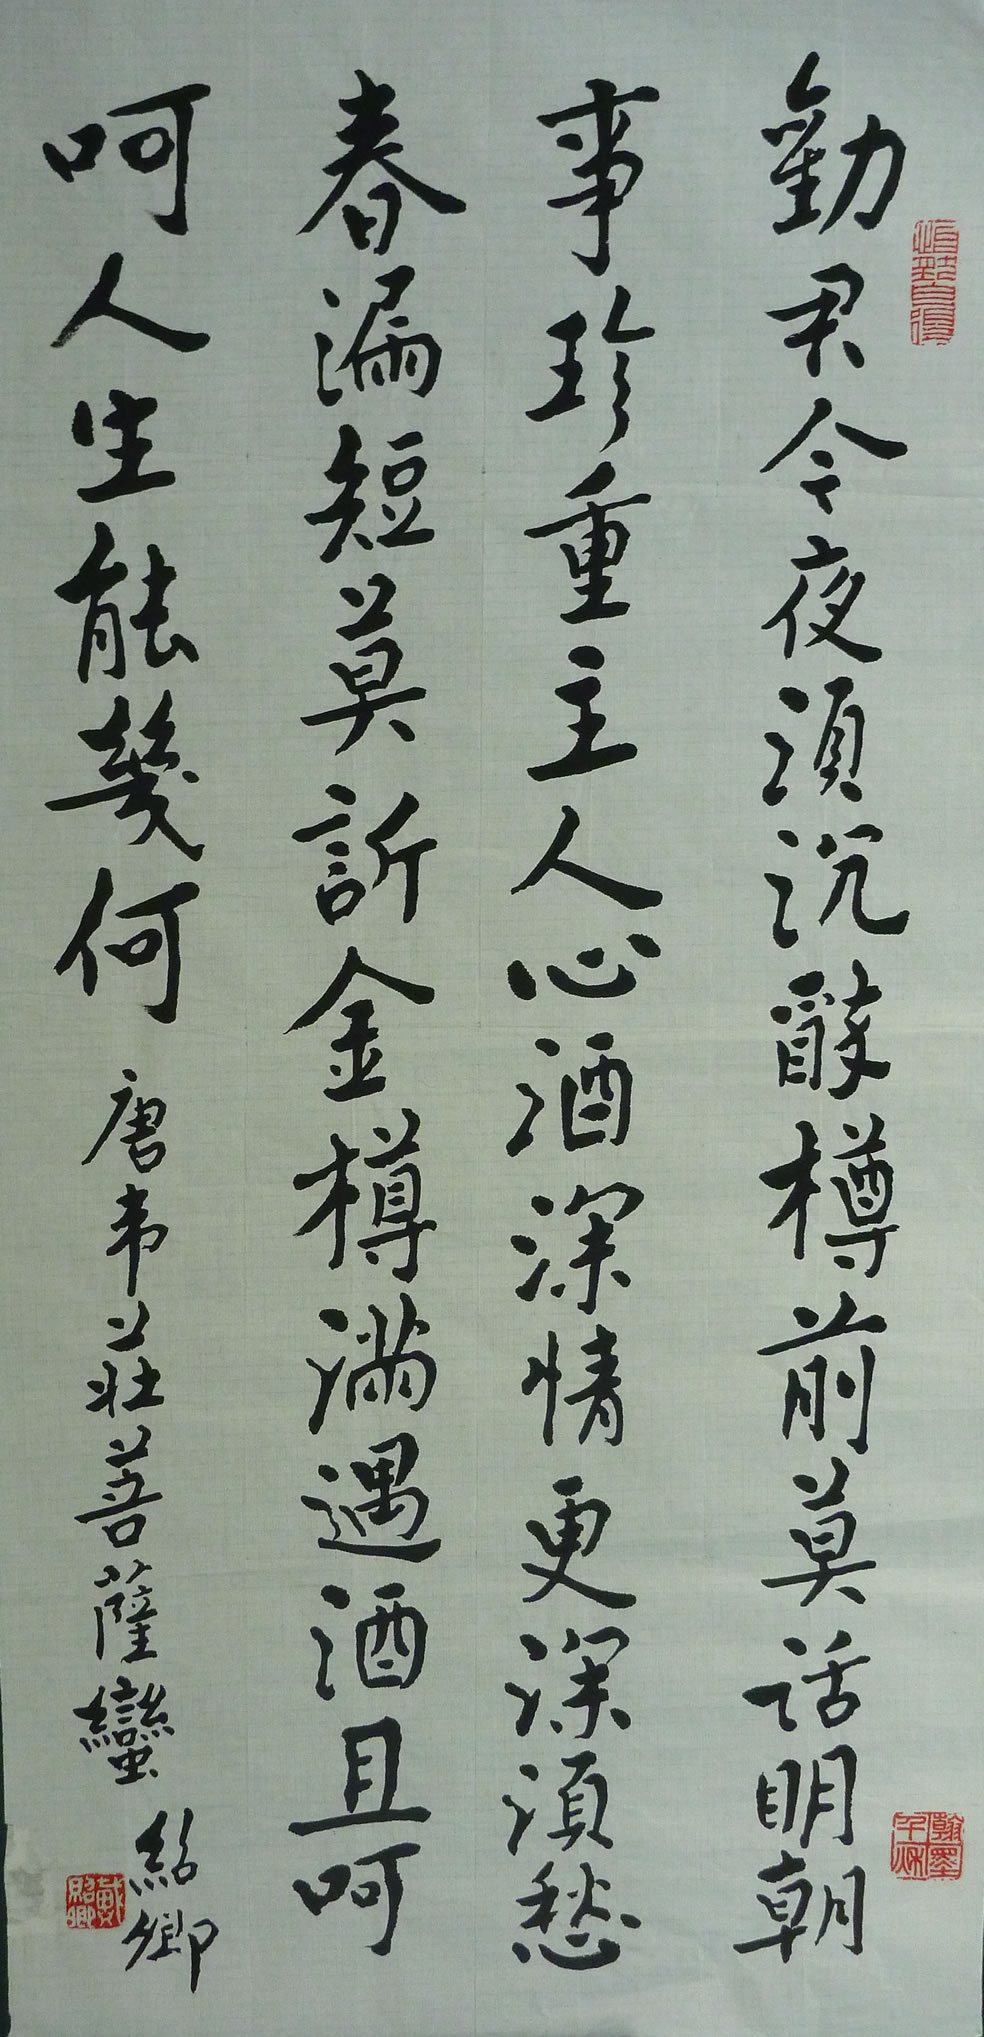 勸君今夜須沉醉樽前莫話明朝
事珍重主人心酒深情更深須愁
春漏短莫訴金樽滿遇酒且呵
呵人生能幾何
唐韦莊菩薩蠻
紹卿
翰墨千秋
戴紹卿